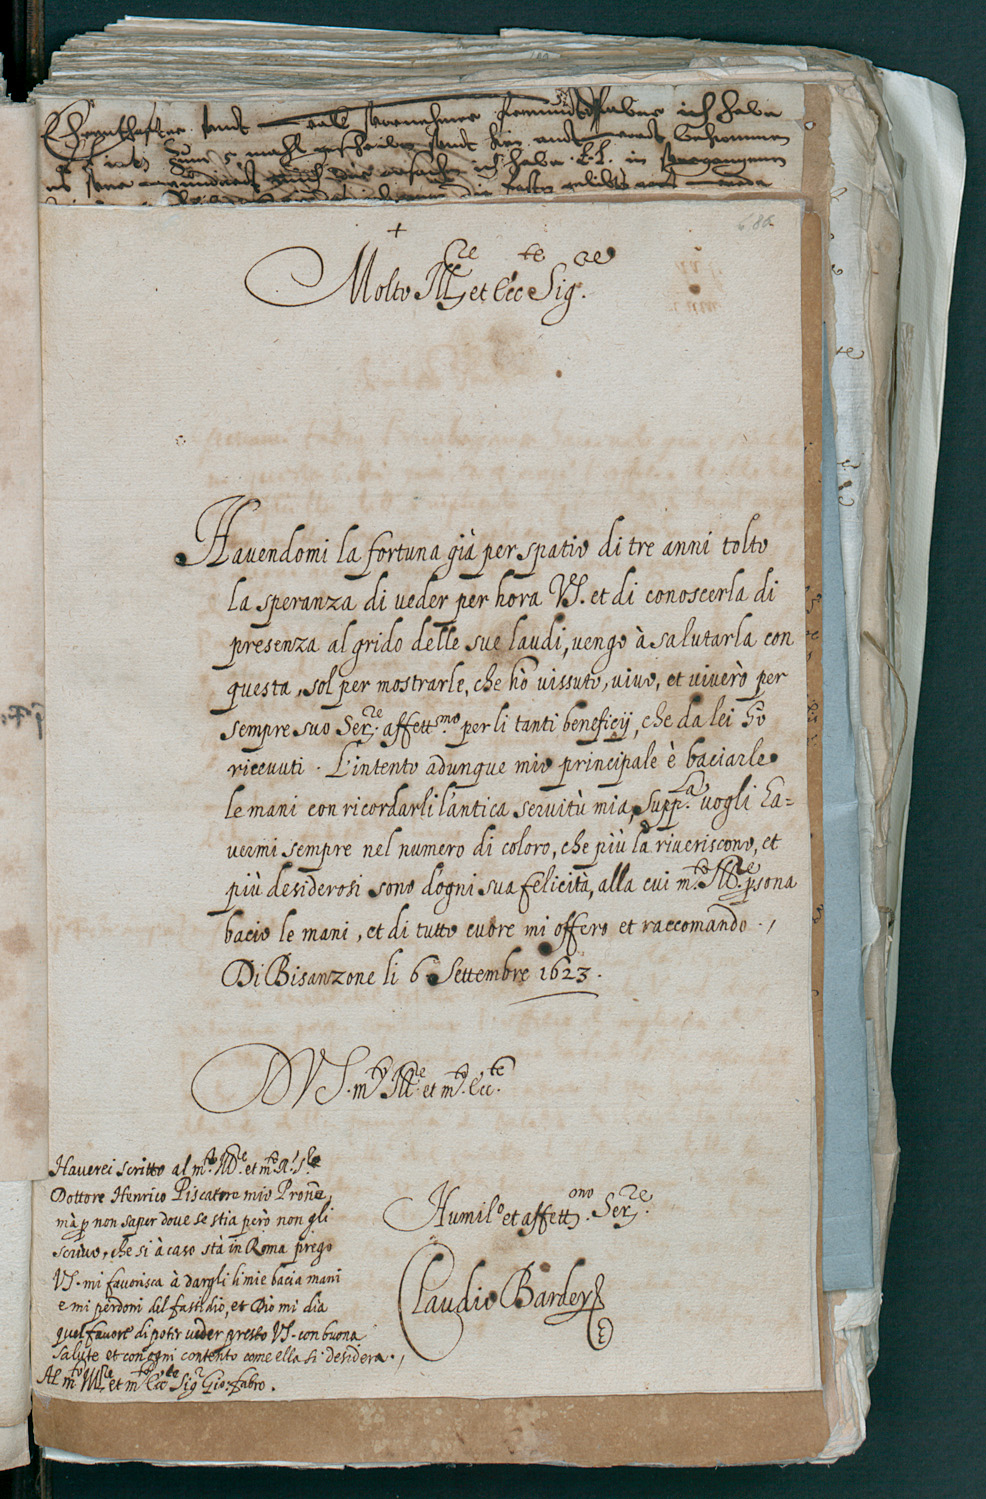 682
+
Molto Ill.re et Ecc.te Sig.re
Hauendomi la fortuna già per spatio di tre anni tolto
la speranza di ueder per hora VS. et di conoscerla di
presenza al grido delle sue laudi, uengo à salutarla con
questa, sol per mostrarle, che hò uissuto, uiuo, et uiuerò per
sempre suo Ser.re affett.mo per li tanti beneficij, che da lei hò
riceuuti. L'intento adunque mio principale è baciarle
le mani con ricordarli l'antica seruitù mia, supp.la uogli ha=
uermi sempre nel numero di coloro, che più la riueriscono, et
più desiderosi sono d'ogni sua felicità, alla cui m.to Ill.re psona
bacio le mani, et di tutto cuore mi offero et raccomando.,
Di Bisanzone li 6 Settembre 1623.
D VS. m.to Ill.re et m.to Ecc.te
Hauerei scritto al m.to Ill.re et m.to R.
Dottore Henrico Piscatore mio Prone,
mà p non saper doue se stia però non gli
scriuo, che si à caso stà in Roma prego
VS. mi fauorisca à dargli li mie bacia mani
e mi perdoni del fastidio, et Dio mi dia
quel fauore di poter ueder presto VS. con buona
salute et con ogni contento come ella si desidera.,
Al m.to Ill.re et m.to Ecc.te Sig.r Gio: fabro.
Humil.o et affett.mo Ser.re
Claudio Bardey